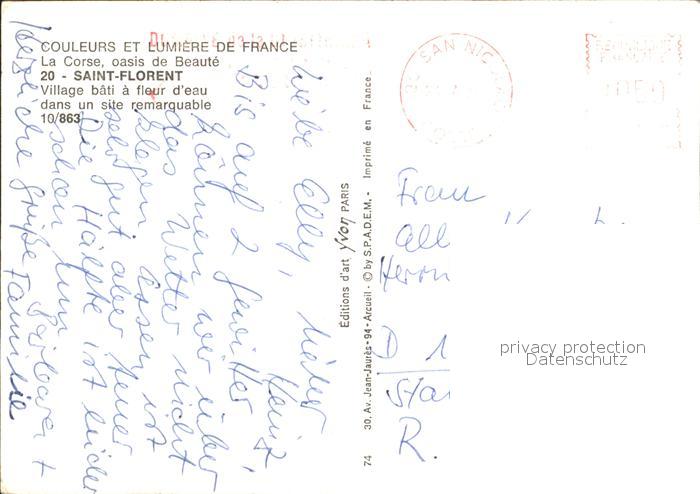 COULEURS ET LUMIÈRE DE FRANCE
La Corse, oasis de Beauté
20 - SAINT-FLORENT
Village bâti à fleur d'eau
dans un site remarquable
10/863
Liebe Elly, lieber
Heinz,
Bis auf 2 Gewitter
können wir über
das Wetter nicht
klagen. Essen ist
sehr gut aber teuer
Die Hälfte ist leider
schon um.
Herzliche Grüße
Familie
Éditions d'art yvon PARIS
30, Av. Jean-Jaurès - 94 - Arcueil - © by S.P.A.D.E.M. - Imprimé en France
74
SAN NIC
Frau
Herrn
D 1
R.
privacy protection
Datenschutz